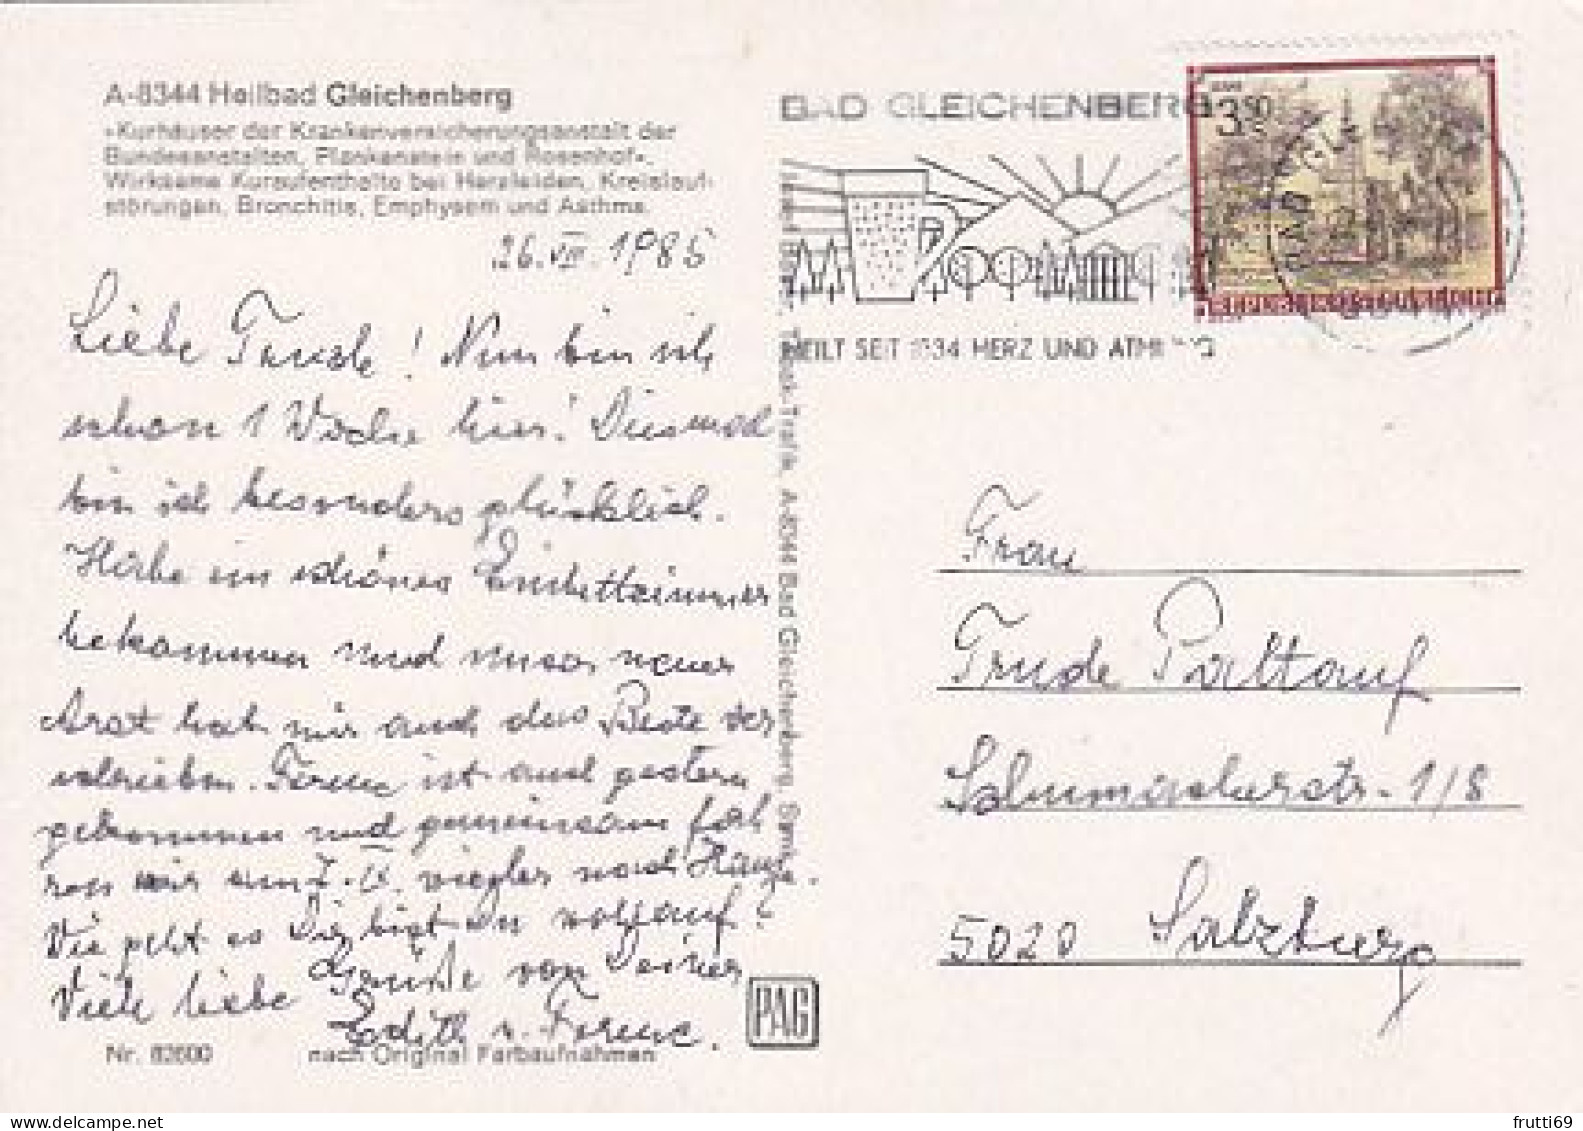 A-8344 Heilbad Gleichenberg
»Kurhäuser der Krankenversicherungsanstalt der
Bundesanstalten, Plankenstein und Rosenhof«.
Wirksame Kuraufenthalte bei Herzleiden, Kreislauf-
störungen, Bronchitis, Emphysem und Asthma.
26. VIII. 1985
Liebe Trude! Nun bin ich
schon 1 Woche hier! Diesmal
bin ich besonders glücklich.
Habe ein schönes Einbettzimmer
bekommen und unser neuer
Arzt hat mir auch das Beste ver
schrieben. Ferenc ist auch gestern
gekommen und gemeinsam fah
ren wir am 7. IX. wieder nach Hause.
Wie geht es Dir, bist Du wohlauf?
Viele liebe Grüße von Deiner
Edith u. Ferenc.
Nr. 82600 nach Original Farbaufnahmen
PAG
Tabak-Trafik, A-8344 Bad Gleichenberg,
BAD GLEICHENBERG
HEILT SEIT 1834 HERZ UND ATMUNG
3.50
REPUBLIK ÖSTERREICH
Frau
Trude Paltauf
Schumacherstr. 1/8
5020 Salzburg
frutti69